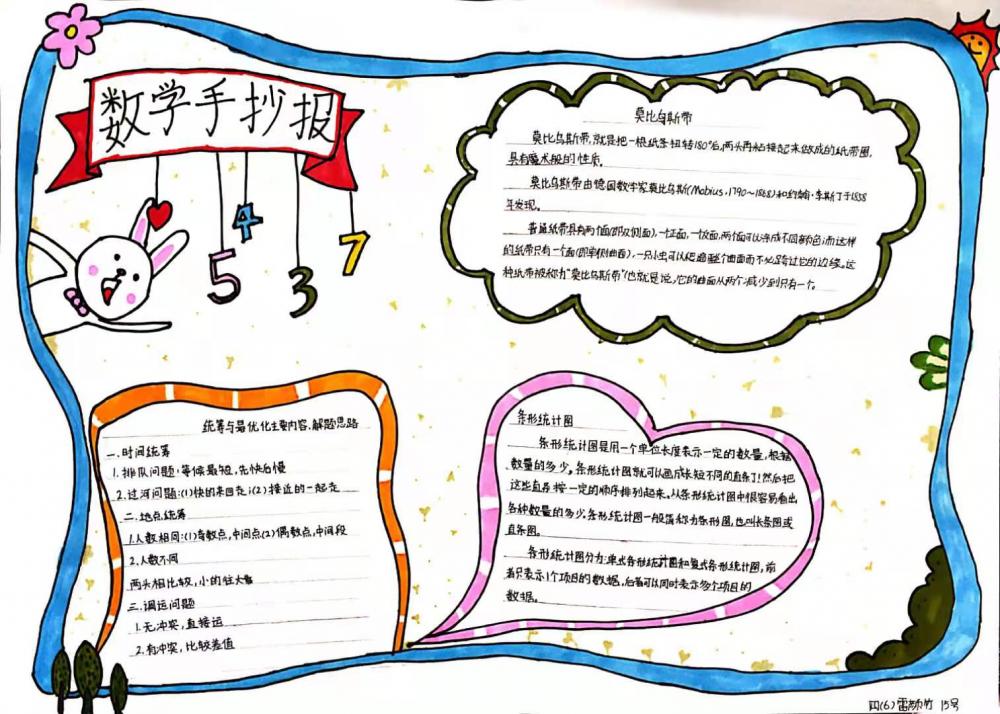 数学手抄报
5
4
3
7
莫比乌斯带
莫比乌斯带,就是把一根纸条扭转180°后,两头再粘接起来做成的纸带圈,
具有魔术般的性质。
莫比乌斯带由德国数学家莫比乌斯(Mobius,1790~1868)和约翰·李斯丁于1858
年发现。
普通纸带具有两个面(即双侧面),一个正面,一个反面,两个面可以涂成不同颜色;而这样
的纸带只有一个面(即单侧曲面),一只小虫可以爬遍整个曲面而不必跨过它的边缘。这
种纸带被称为"莫比乌斯带"(也就是说,它的曲面从两个减少到只有一个。
统筹与最优化主要内容.解题思路
一.时间统筹
1.排队问题:等候最短,先快后慢
2.过河问题:(1)快的来回走;(2)接近的一起走
二.地点统筹
1.人数相同:(1)奇数点,中间点(2)偶数点,中间段
2.人数不同
两头相比较,小的往大靠
三.调运问题
1.无冲突,直接运
2.有冲突,比较差值
条形统计图
条形统计图是用一个单位长度表示一定的数量,根据
数量的多少。条形统计图就可以画成长短不同的直条了!然后把
这些直条按一定的顺序排列起来。从条形统计图中很容易看出
各种数量的多少。条形统计图一般简称为条形图,也叫长条图或
直条图。
条形统计图分为:单式条形统计图和复式条形统计图,前
者只表示1个项目的数据,后者可以同时表示多个项目的
数据。
四(6)雷颜竹 15号